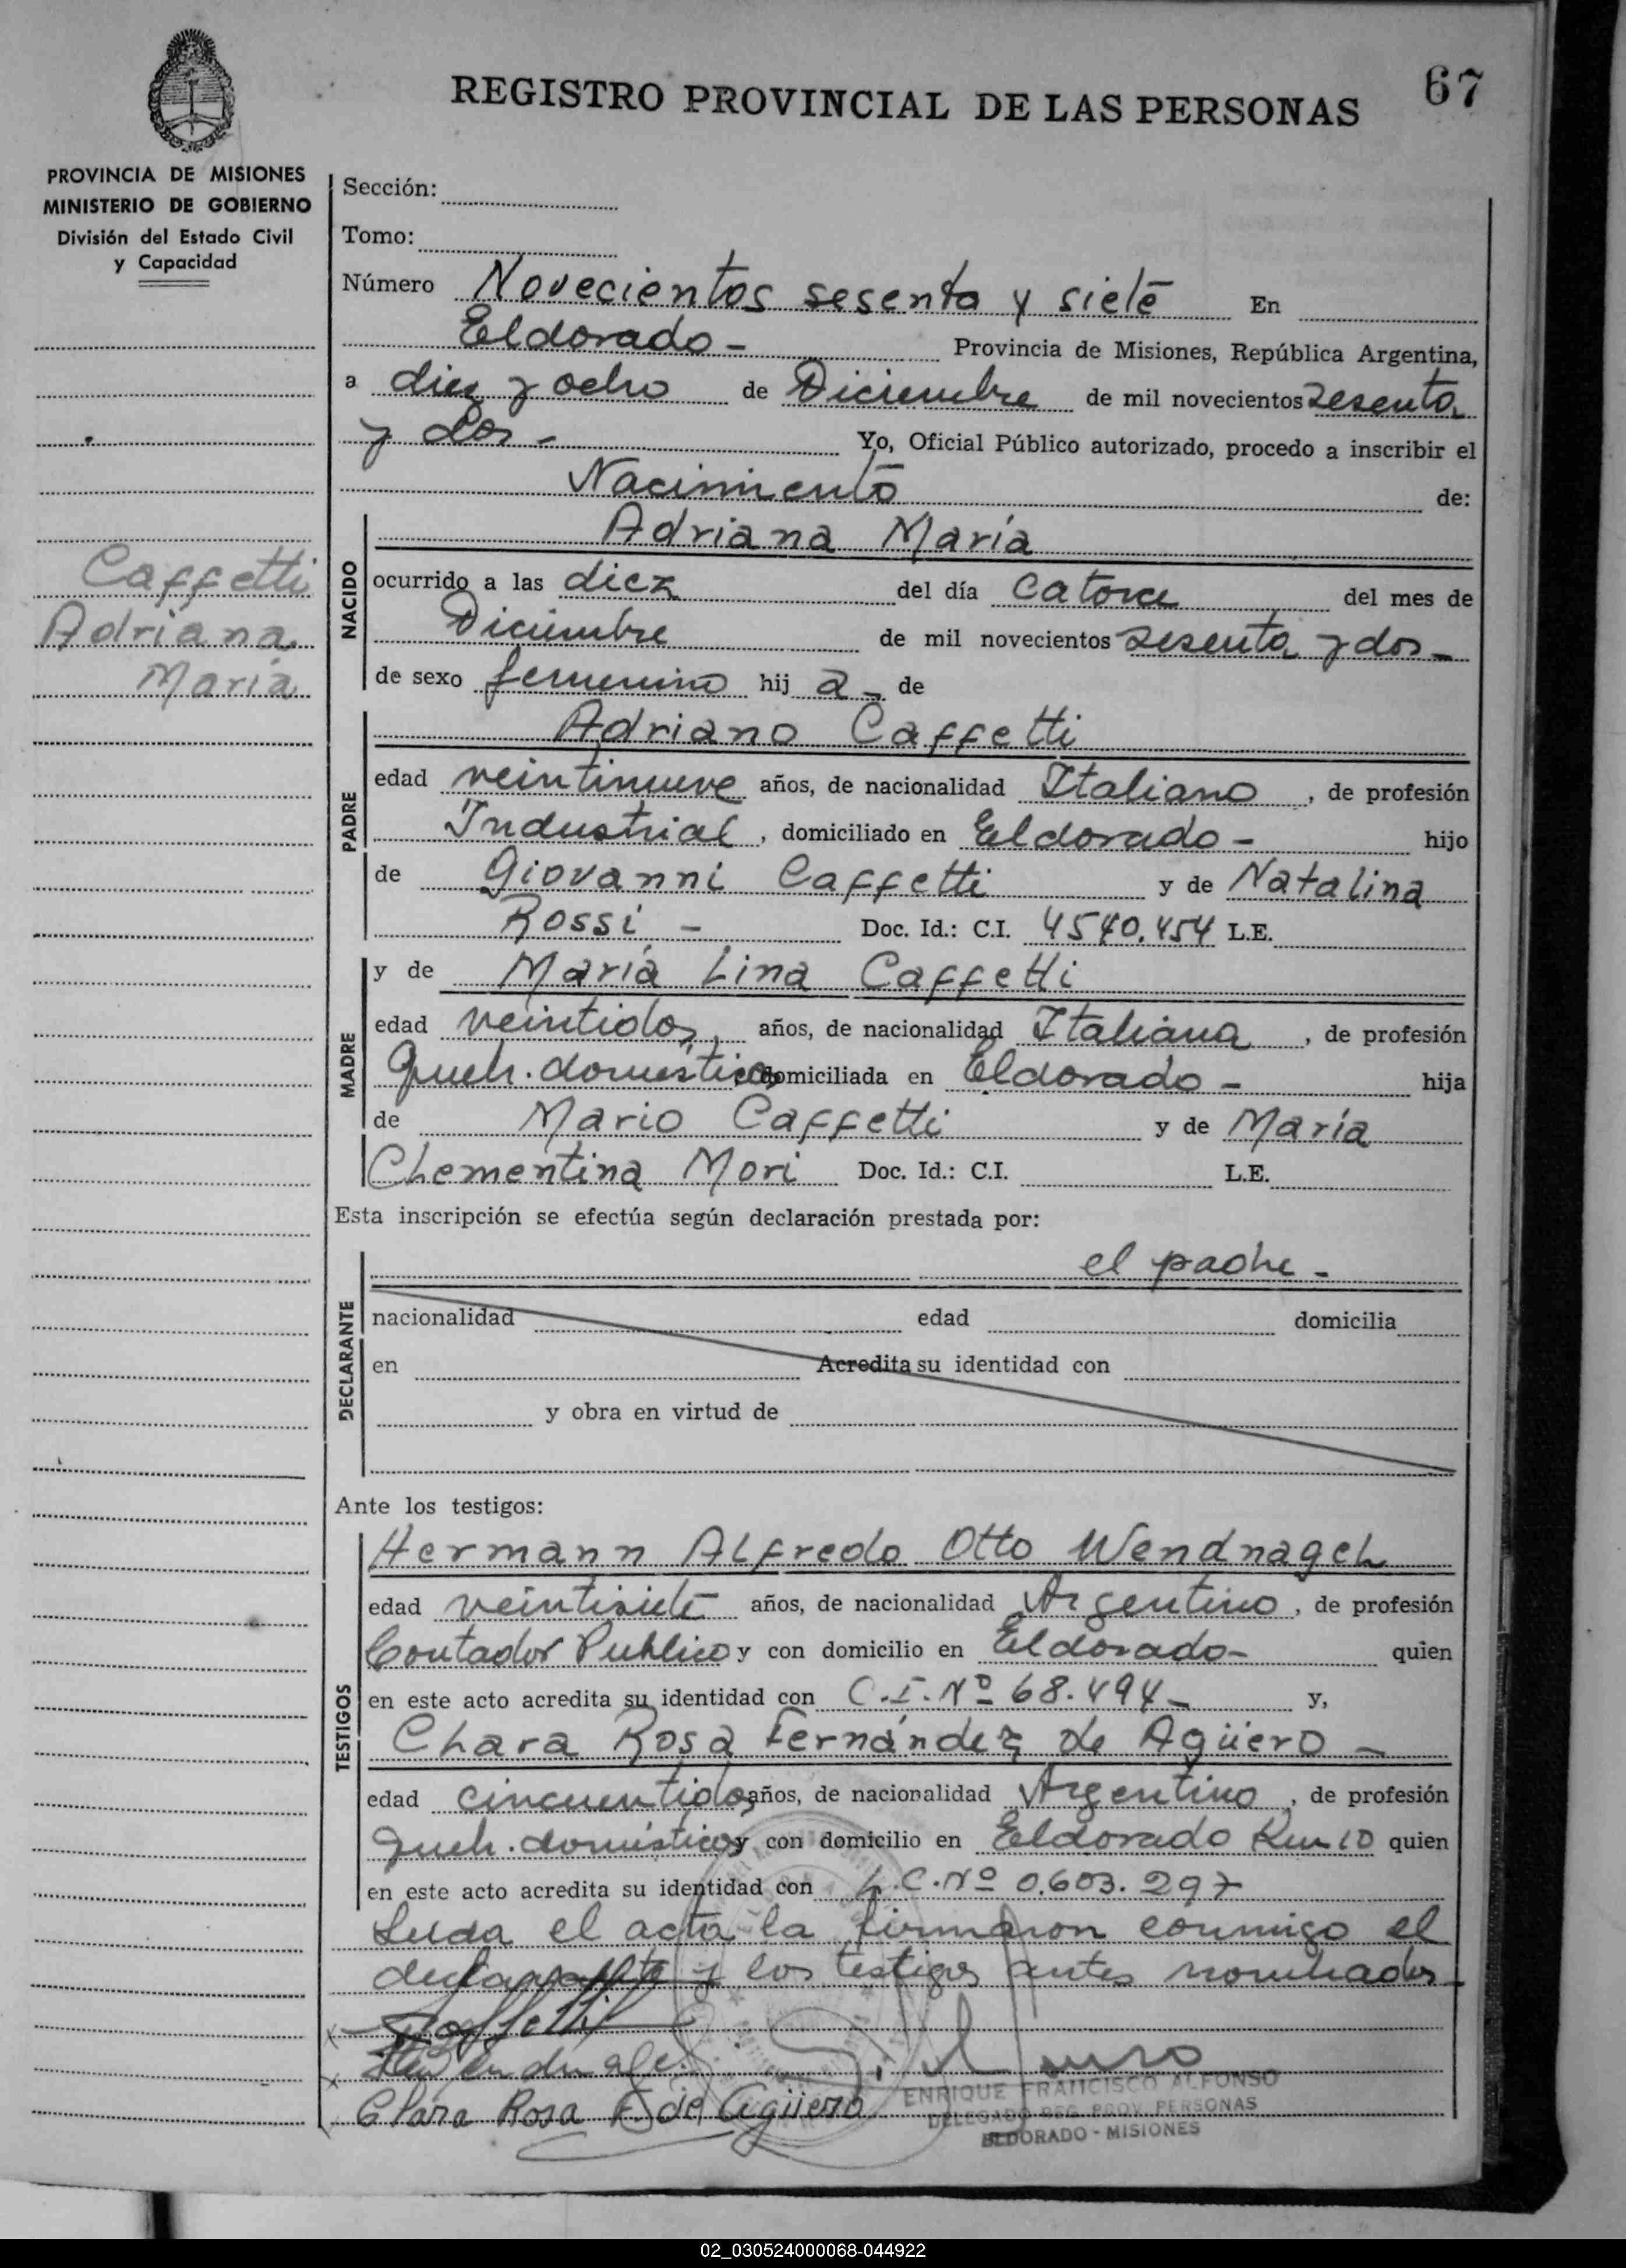 67
REGISTRO PROVINCIAL DE LAS PERSONAS
PROVINCIA DE MISIONES
MINISTERIO DE GOBIERNO
División del Estado Civil
y Capacidad
Caffetti
Adriana
María
Sección:
Tomo:
Número Novecientos sesenta y siete En
Eldorado - Provincia de Misiones, República Argentina,
a diez y ocho de Diciembre de mil novecientos sesenta
y dos - Yo, Oficial Público autorizado, procedo a inscribir el
Nacimiento de:
NACIDO
Adriana María
ocurrido a las diez del día catorce del mes de
Diciembre de mil novecientos sesenta y dos -
de sexo femenino hij a - de
PADRE
Adriano Caffetti
edad veintinueve años, de nacionalidad Italiano, de profesión
Industrial, domiciliado en Eldorado - hijo
de Giovanni Caffetti y de Natalina
Rossi - Doc. Id.: C.I. 4540.454 L.E.
MADRE
y de María Lina Caffetti
edad veintidos, años, de nacionalidad Italiana, de profesión
Queh. domésticos domiciliada en Eldorado - hija
de Mario Caffetti y de María
Clementina Mori Doc. Id.: C.I. L.E.
Esta inscripción se efectúa según declaración prestada por:
DECLARANTE
el padre -
nacionalidad edad domicilia
en Acredita su identidad con
y obra en virtud de
Ante los testigos:
TESTIGOS
Hermann Alfredo Otto Wendnagel
edad veintisiete años, de nacionalidad Argentino, de profesión
Contador Publico y con domicilio en Eldorado - quien
en este acto acredita su identidad con C.I. Nº 68.494 - y,
Clara Rosa Fernández de Agüero -
edad cincuentidos años, de nacionalidad Argentino, de profesión
queh. domésticos y con domicilio en Eldorado Km 10 quien
en este acto acredita su identidad con L.C. Nº 0.603.297
Leida el acta la firmaron conmigo el
declarante y los testigos antes nombrados -
Caffetti
Clara Rosa F. de Agüero
ENRIQUE FRANCISCO ALFONSO
DELEGADO REG. PROV. PERSONAS
ELDORADO - MISIONES
02_030524000068-044922